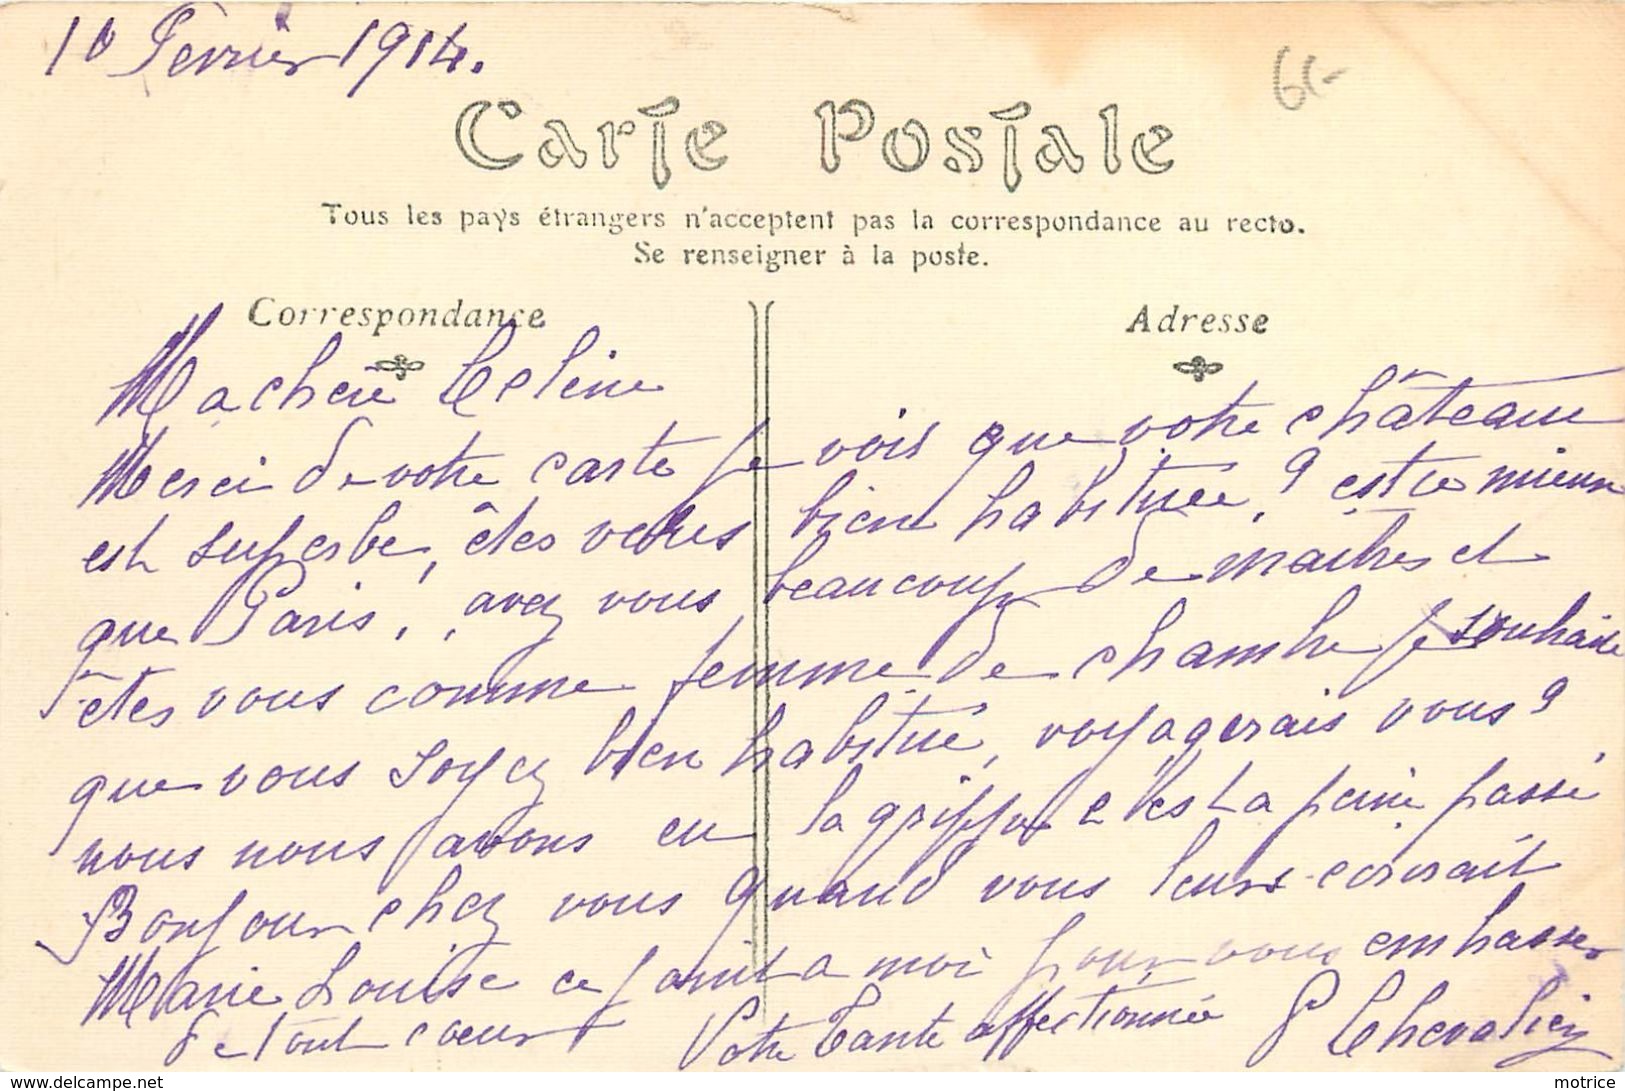 10 Février 1914.
6(-
Carte Postale
Tous les pays étrangers n'acceptent pas la correspondance au recto.
Se renseigner à la poste.
Correspondance
Adresse
Ma chere Celine
Merci de votre carte je vois que votre château
est superbe, êtes vous bien habituée, ? est ce mieux
que Paris, , avez vous beaucoup de maitres et
êtes vous comme femme de chambre je souhaite
que vous soyez bien habitué, voyagerais vous?
nous nous avons eu la grippe c'est a peine passé,
Bonjour chez vous quand vous leurs ecrirait
Marie Louise ce joint a moi pour vous embrasser
de tout coeur Votre Tante affectionnée P Chevalier
delcampe.net
motrice